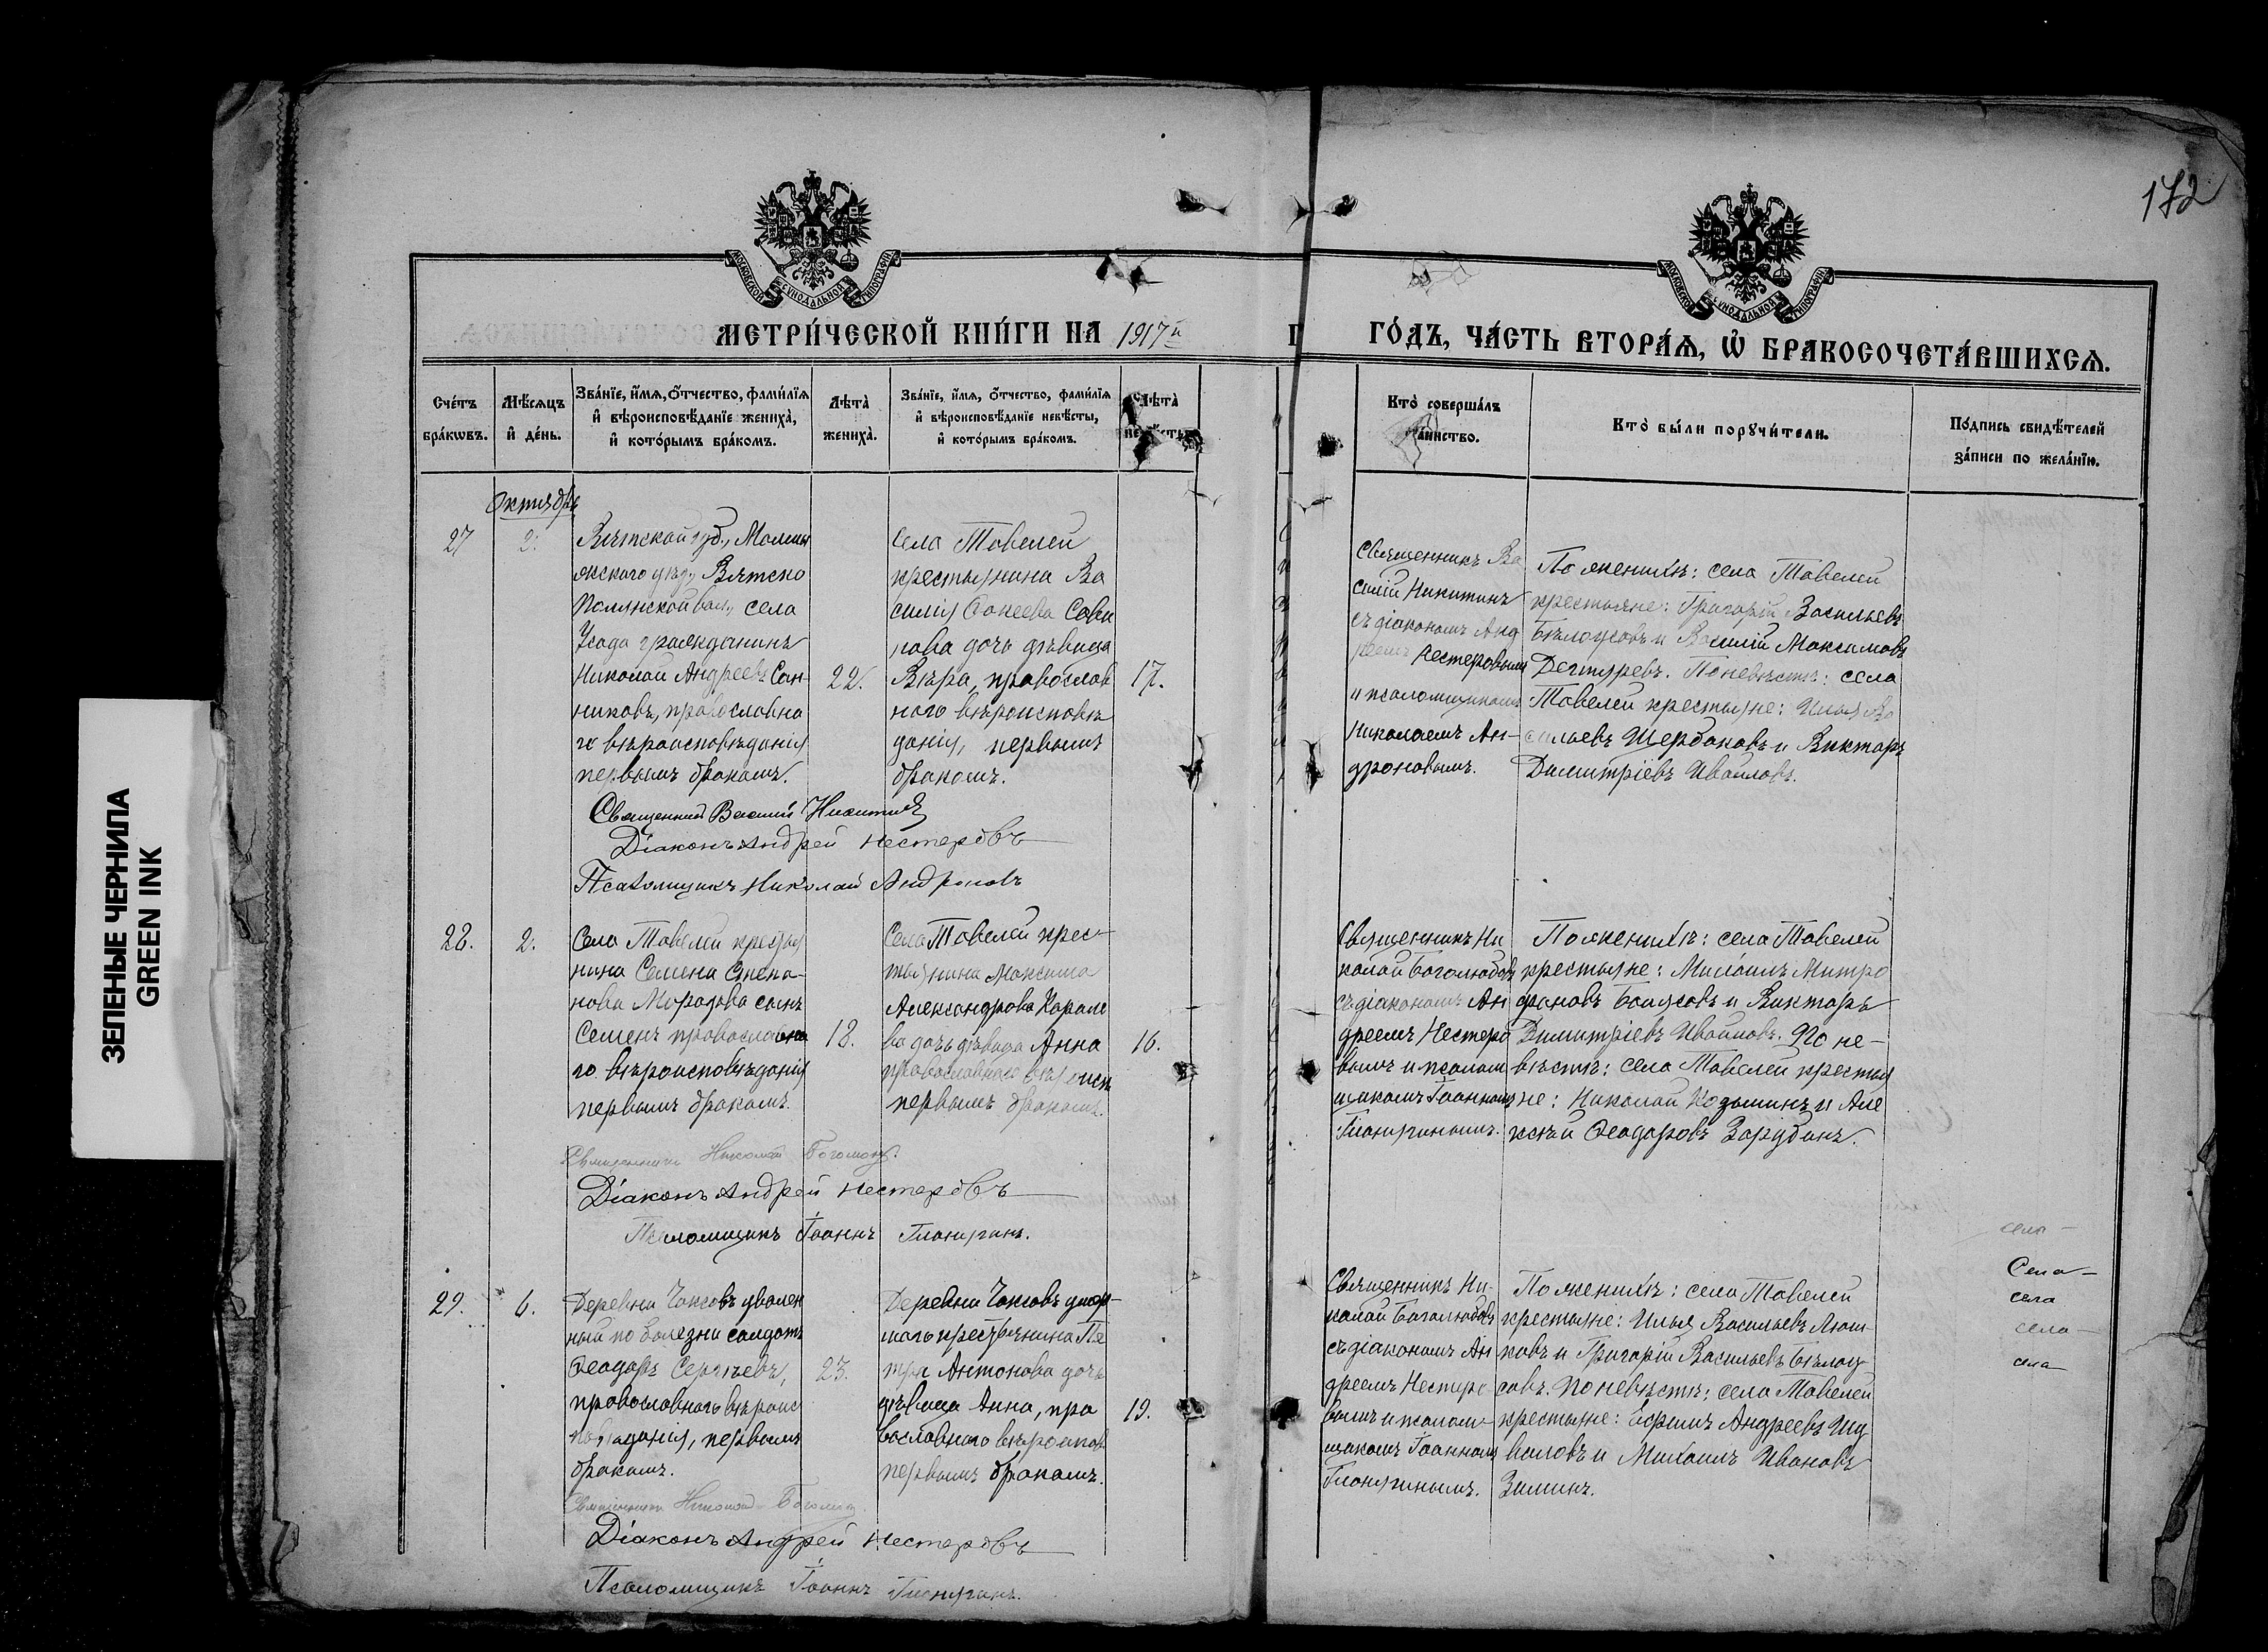 ЗЕЛЕНЫЕ ЧЕРНИЛА
GREEN INK
172
МОСКОВСКОЙ СѴНОДАЛЬНОЙ ТИПОГРАФІИ
МОСКОВСКОЙ СѴНОДАЛЬНОЙ ТИПОГРАФІИ
МЕТРИ́ЧЕСКОЙ КНИ́ГИ НА 1917й
ГО́ДЪ, ЧА́СТЬ ВТОРА́Ѧ, Ѡ҆ БРАКОСОЧЕТА́ВШИХСѦ.
Сче́тъ
бра́кѡвъ.
Мѣ́сѧцъ
и҆ де́нь.
Зва́нїе, и҆́мѧ, ѻ҆́тчество, фами́лїѧ
и҆ вѣроисповѣ́данїе жениха̀,
и҆ кото́рымъ бра́комъ.
Лѣта̀
жениха̀.
Зва́нїе, и҆́мѧ, ѻ҆́тчество, фами́лїѧ
и҆ вѣроисповѣ́данїе невѣ́сты,
и҆ кото́рымъ бра́комъ.
Лѣта̀
Кто̀ соверша́лъ
таинство.
Кто̀ бы́ли порꙋчи́тели.
По́дпись свидѣ́телей
за́писи по жела́нїю.
Октябрь
27
2.
Вятской губ., Малмы
жскаго уѣзд., Вятско
Полянской вол., села
Усада гражданинъ
Николай Андреевъ Сан-
никовъ, православна
го вѣроисповѣданія
первымъ бракомъ.
22.
Села Товелей
крестьянина Ва
силія Фокеева Сави
нова дочь дѣвица
Вѣра, православ
наго вѣроисповѣ
данія, первымъ
бракомъ.
17.
Священникъ Ва
силій Никитинъ
съ діакономъ Анд
реемъ Нестеровымъ
и псаломщикомъ
Николаемъ Ан-
дроновымъ.
По женихѣ: села Товелей
крестьяне: Григорій Васильевъ
Бѣлоусовъ и Василій Максимовъ
Дегтяревъ. По невѣстѣ: села
Товелей крестьяне: Илья Ва
сильевъ Щербаковъ и Викторъ
Димитріевъ Ивайловъ.
Священникъ Василій Никитинъ
Діаконъ Андрей Нестеровъ
Псаломщикъ Николай Андроновъ
28.
2.
Села Товелей крестья
нина Семена Степа-
нова Морозова сынъ
Семенъ православна
го вѣроисповѣданія
первымъ бракомъ.
18.
Села Товелей крес-
тьянина Максима
Александрова Карапе
ва дочь дѣвица Анна
православнаго вѣроисп
первымъ бракомъ.
16.
Священникъ Ни
колай Боголюбовъ
съ діакономъ Ан
дреемъ Нестеро
вымъ и псалом
щикомъ Іоанномъ
По женихѣ: села Товелей
крестьяне: Михаилъ Митро
фановъ Бѣлоусовъ и Викторъ
Димитріевъ Ивайловъ. По не-
вѣстѣ: села Товелей крестья
не: Николай Козьминъ и Але
ксѣй Ѳеодоровъ Зарубинъ.
Священникъ Николай Боголюбовъ.
Діаконъ Андрей Нестеровъ
Псаломщикъ Іоаннъ
29.
6.
Деревни Чаксовъ уволен
ный по болезни солдатъ
Ѳеодоръ Сергѣевъ,
православнаго вѣроис
повѣданія, первымъ
бракомъ.
23.
Деревни Чаксовъ умер-
шаго крестьянина Пе
тра Антонова дочь
дѣвица Анна, пра
вославнаго вѣроиспов
первымъ бракомъ.
19.
Священникъ Ни-
колай Боголюбовъ
съ діакономъ Ан
дреемъ Нестеро
вымъ и псалом-
щикомъ Іоанномъ
По женихѣ: села Товелей
крестьяне: Илья Васильевъ Лют-
ковъ и Григорій Васильевъ Бѣлоу
совъ. По невѣстѣ: села Товелей
крестьяне: Ефремъ Андреевъ Шу
валовъ и Михаилъ Ивановъ
Зиминъ.
села
Села
села
села
села
Священникъ Николай Боголюбовъ
Діаконъ Андрей Нестеровъ
Псаломщикъ Іоаннъ